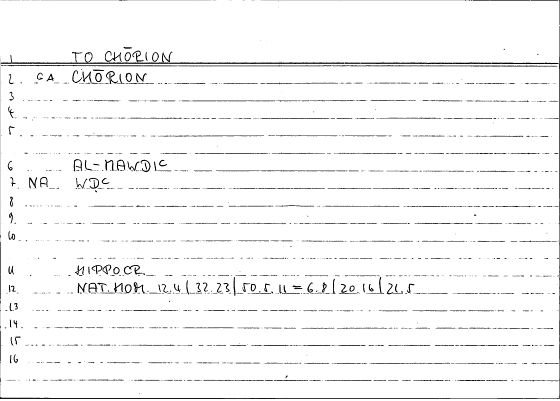 1 TO CHŌRION
2 GA CHŌRION
3
4
5
6 AL-MAWDIʿ
7 NA WDʿ
8
9
10
11 HIPPOCR.
12 NAT. HOM. 12.4 | 32.23 | 50.5.11 = 6.8 | 20.16 | 21.5
13
14
15
16